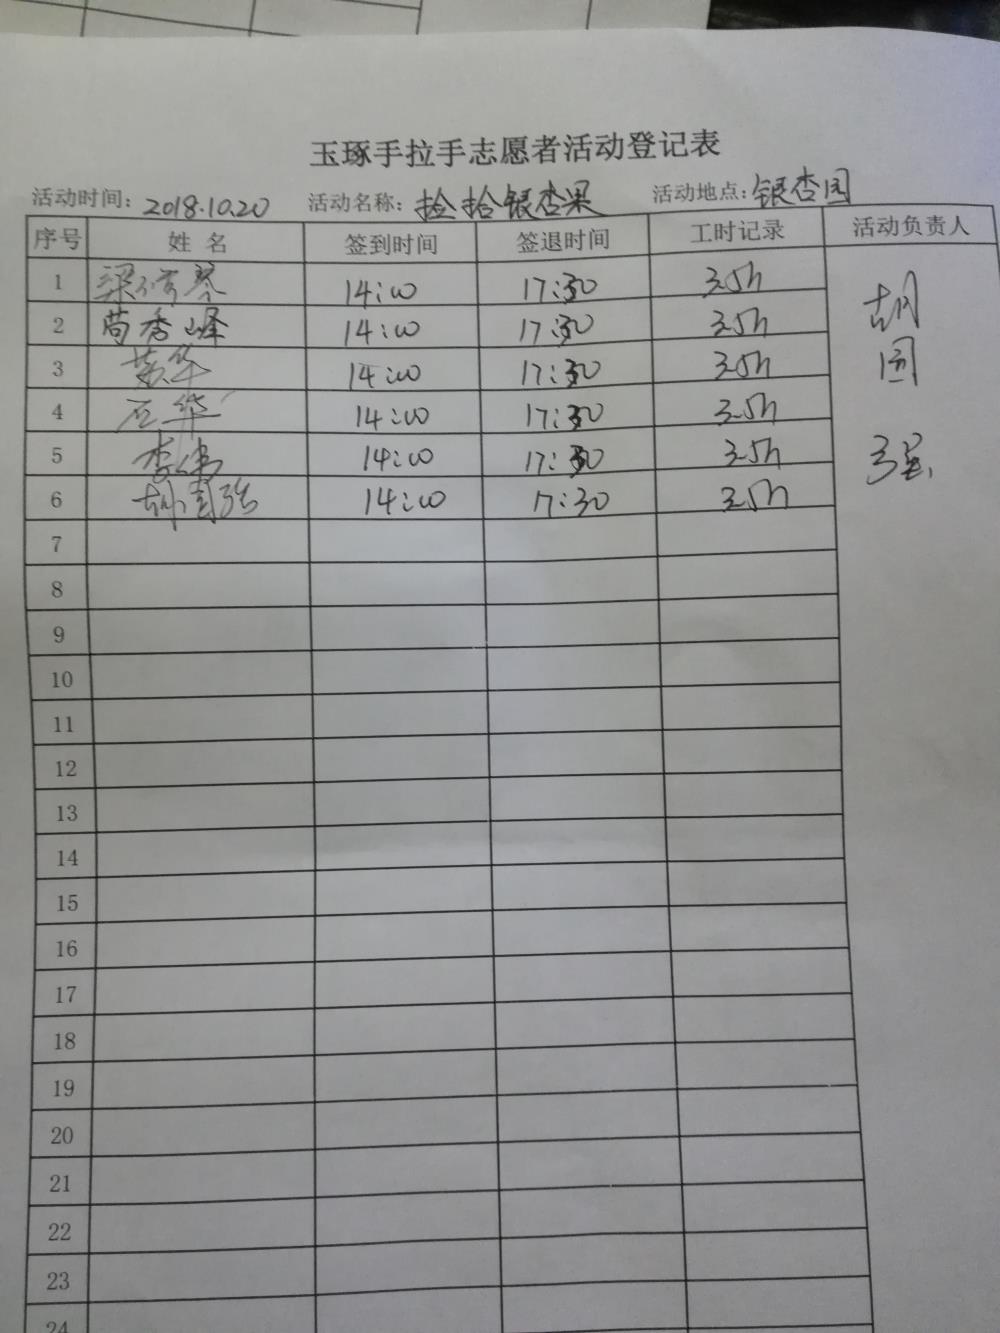 玉琢手拉手志愿者活动登记表
活动时间: 2018.10.20 活动名称: 捡拾银杏果 活动地点: 银杏园
序号 姓名 签到时间 签退时间 工时记录 活动负责人
1 14:00 17:30 3.5h 胡
2 苟秀峰 14:00 17:30 3.5h 国
3 黄华 14:00 17:30 3.5h
4 石华 14:00 17:30 3.5h
5 李伟 14:00 17:30 3.5h 强
6 胡国强 14:00 17:30 3.5h
7
8
9
10
11
12
13
14
15
16
17
18
19
20
21
22
23
24